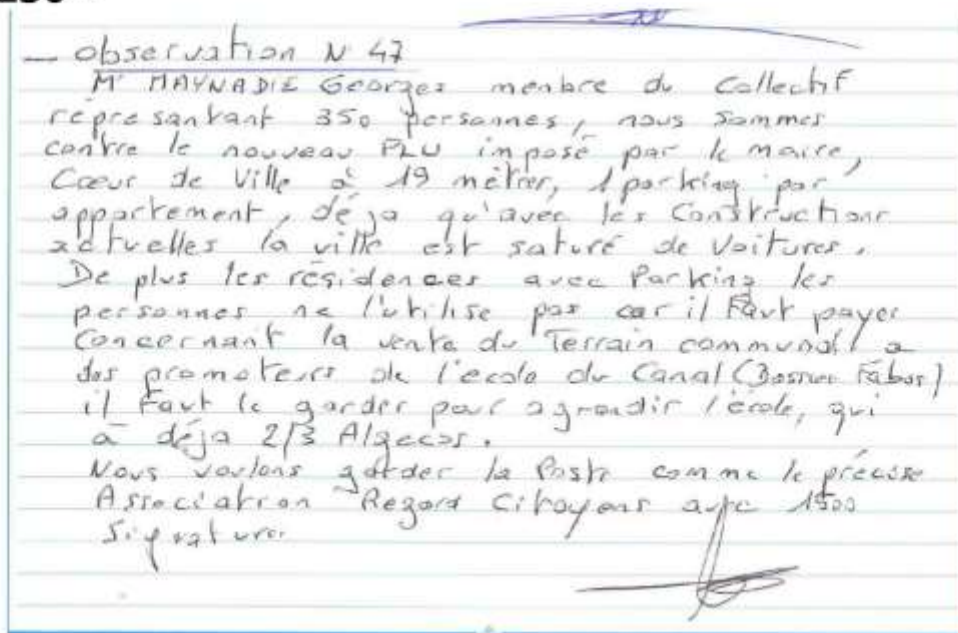 — observation N 47
Mr MAYNADIE Georges menbre du Collectif
répresantant 350 personnes, nous sommes
contre le nouveau PLU imposé par le maire,
Cœur de Ville à 19 mètres, 1 parking par
appartement, déja qu'avec les Constructions
actuelles la ville est saturé de Voitures.
De plus les résidences avec Parking les
personnes ne l'utilise pas car il Faut payer
Concernant la vente du Terrain communal a
des promoteurs de l'ecole du Canal (Dossier Fabas)
il Faut le garder pour agrandir l'école, qui
à déja 2/3 Algecos.
Nous voulons garder la Poste comme le précise
Association Regard Citoyens avec 1500
Signatures